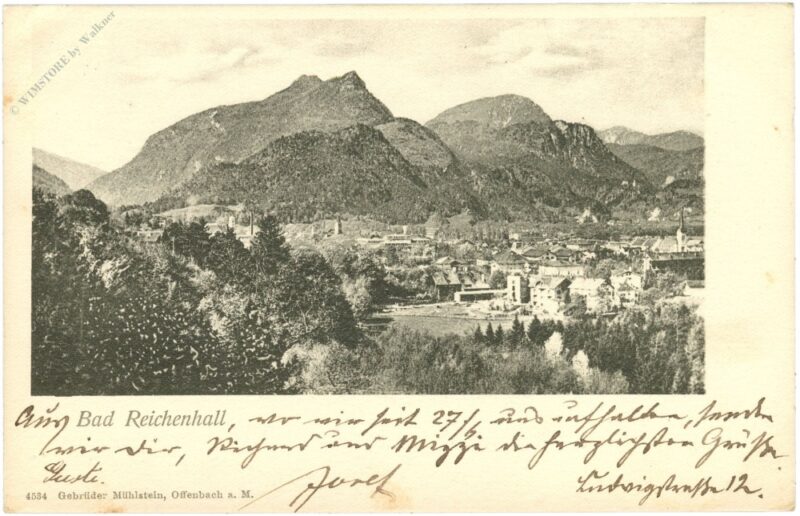 © WIMSTORE by Walkner
Aus Bad Reichenhall, wo wir seit 27/, uns aufhalten, senden
wir Dir, Richard und Mizzi die herzlichsten Grüße
Guste. Josef Ludwigstraße 12.
4534 Gebrüder Mühlstein, Offenbach a. M.